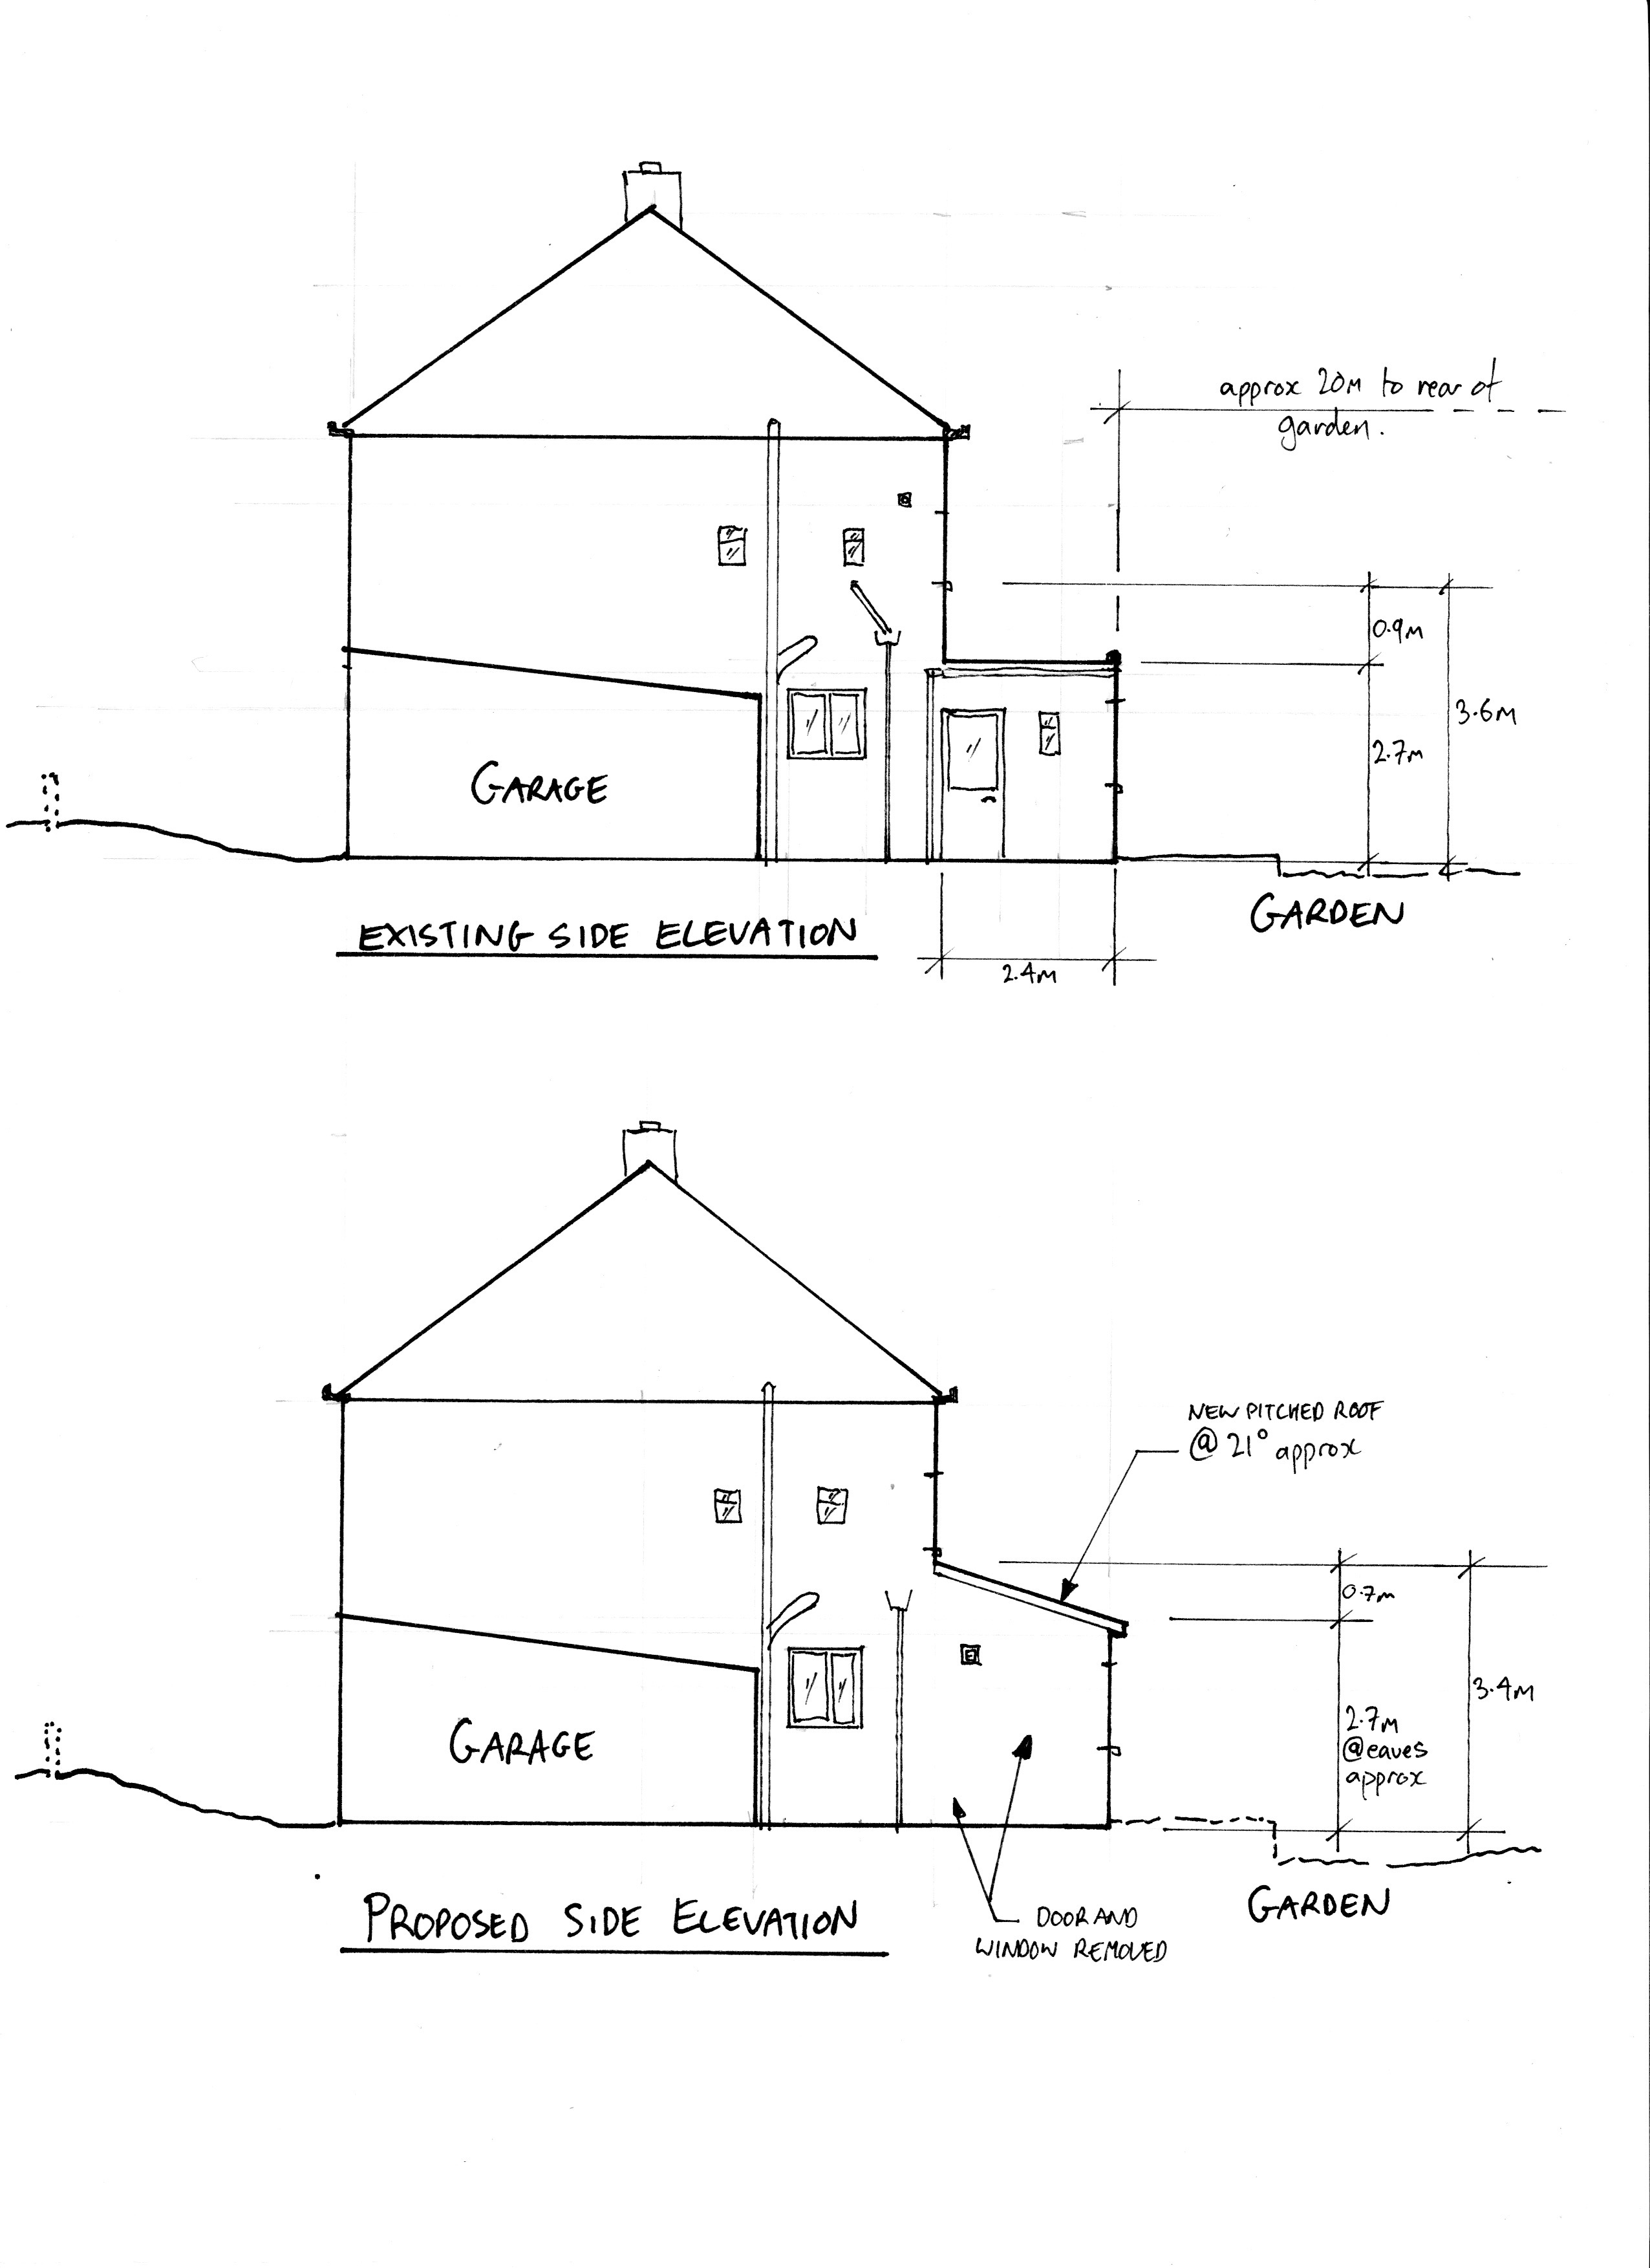 approx 20m to rear of
garden.
0.9m
3.6m
2.7m
GARAGE
GARDEN
EXISTING SIDE ELEVATION
2.4m
NEW PITCHED ROOF
@ 21° approx
0.7m
3.4m
2.7m
@eaves
approx
GARAGE
GARDEN
PROPOSED SIDE ELEVATION
DOOR AND
WINDOW REMOVED